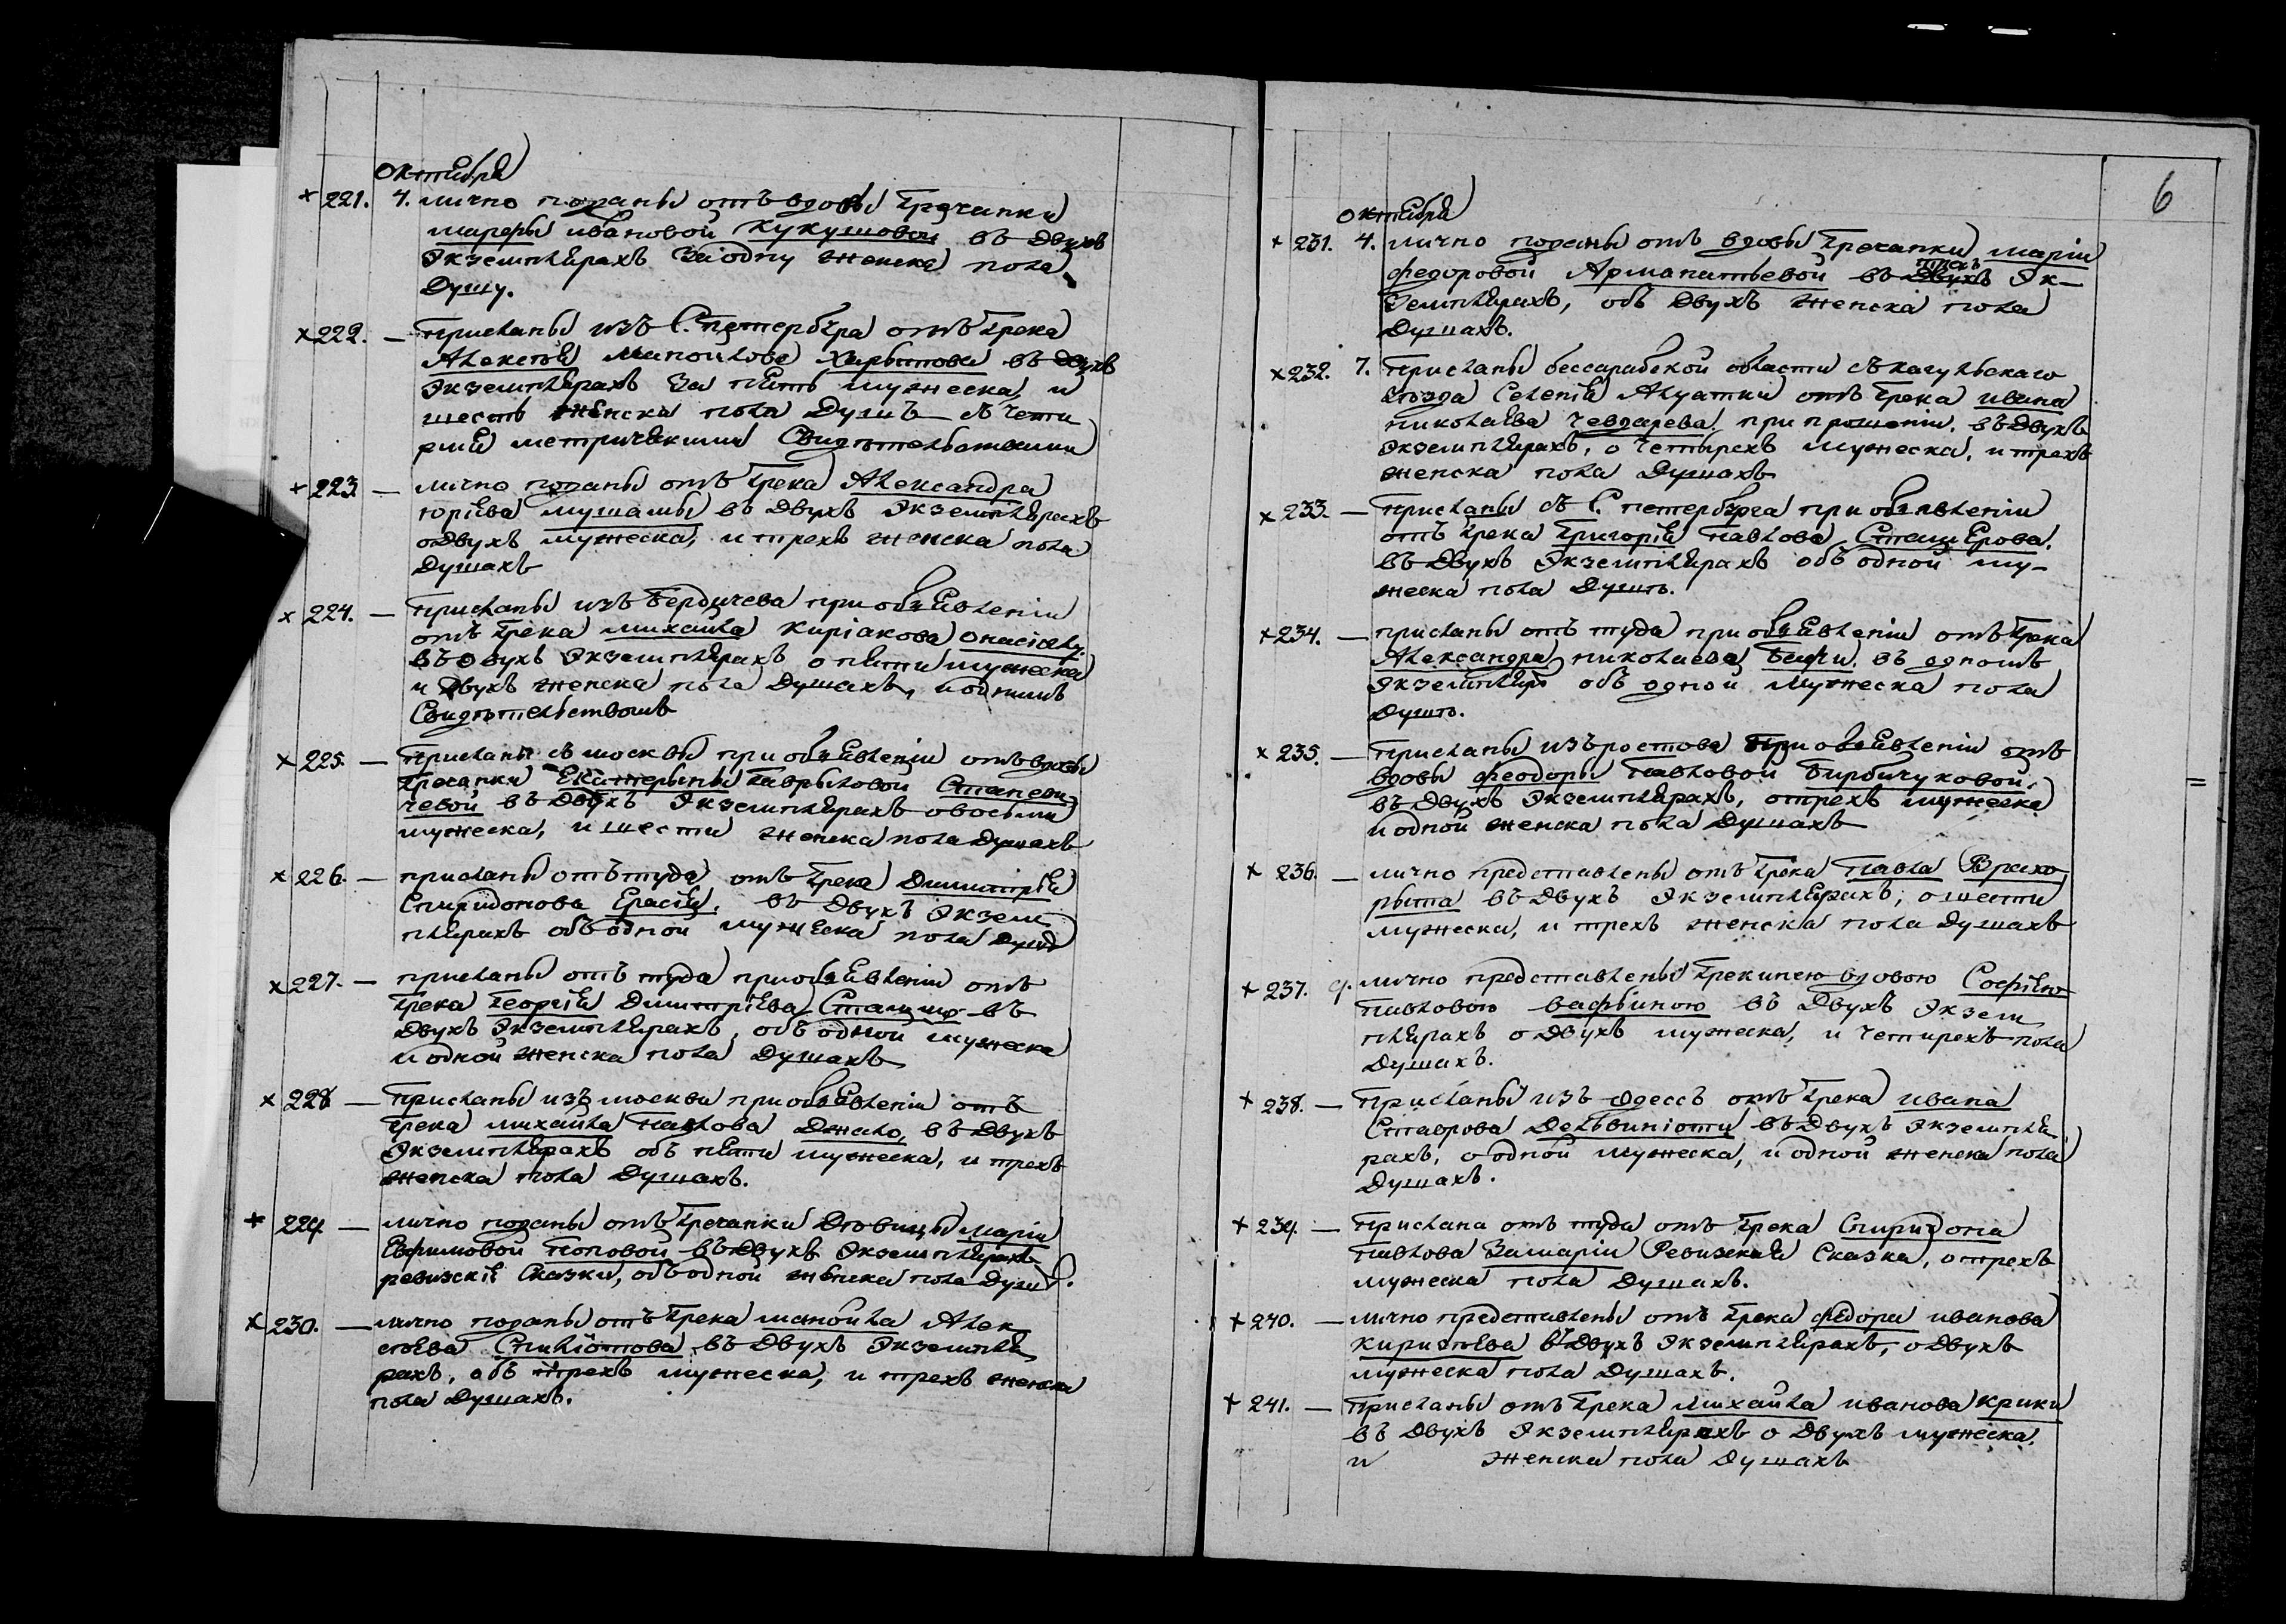 Октября
× 221. 4. лично поданы отъ вдовы Гречанки
марфы ивановой Кукушовой въ двухъ
Экземплярахъ за одну женска пола
Душу.
× 222. — Присланы изъ С. петербурга отъ Грека
Алексѣя Манойлова въ двухъ
Экземплярахъ за пять мужеска, и
шесть женска пола Душъ съ Четы
рми метрическими Свидѣтельствами
× 223. — лично поданы отъ Грека Александра
юрьева въ двухъ Экземплярахъ
о двухъ мужеска, и трехъ женска пола
Душахъ
× 224. — Присланы изъ Бердичева при объявленіи
отъ Грека михайла Киріакова
въ двухъ Экземплярахъ о пяти мужеска
и двухъ женска пола Душахъ, и однимъ
Свидѣтельствомъ
× 225. — Присланы съ москвы при объявленіи отъ вдовы
Гречанки Екатерины Гавриловой Станеви
чевой въ двухъ Экземплярахъ о восьми
мужеска, и шести женска пола Душахъ
× 226. — присланы отъ туда отъ Грека Димитрія
Спиридонова въ двухъ Экзем
плярахъ объ одной мужеска пола Душѣ
× 227. — присланы отъ туда при объявленіи отъ
Грека Георгія Димитріева въ
двухъ Экземплярахъ, объ одной мужеска
и одной женска пола Душахъ
× 228 — Присланы изъ москвы при объявленіи отъ
Грека михайла Павлова въ двухъ
Экземплярахъ объ пяти мужеска, и трехъ
женска пола Душахъ.
× 229. — лично поданы отъ Гречанки Дѣвицы маріи
Ефимовой Поповой въ двухъ Экземплярахъ
ревизскіе Сказки, объ одной женска пола Душѣ.
× 230. — лично поданы отъ Грека манойла Алек
сѣева въ двухъ Экземпля
рахъ, объ трехъ мужеска, и трехъ женска
пола Душахъ.
6
Октября
× 231. 4. лично поданы отъ вдовы Гречанки маріи
федоровой въ двухъ трехъ Эк-
земплярахъ, объ двухъ женска пола
Душахъ.
× 232. 7. Присланы бессарабской области съ кагульскаго
уѣзда Селенія Алуатки отъ Грека ивана
николаева Чебдарева при прошеніи, въ двухъ
Экземплярахъ, о Четырехъ мужеска, и трехъ
женска пола Душахъ
× 233. — Присланы съ С. петербурга при объявленіи
отъ Грека Григорія Павлова
въ двухъ Экземплярахъ объ одной му-
жеска пола Душѣ.
× 234. — присланы отъ туда при объявленіи отъ Грека
Александра николаева въ одномъ
Экземплярѣ объ одной мужеска пола
Душѣ.
× 235. — Присланы изъ ростова при объявленіи отъ
вдовы феодоры Павловой Бирбичуковой
въ двухъ Экземплярахъ, о трехъ мужеска
и одной женска пола Душахъ
× 236. — лично представлены отъ Грека Павла
въ двухъ Экземплярахъ, о шести
мужеска, и трехъ женска пола Душахъ
× 237. 9. лично представлены Грекинею вдовою Софіею
Павловою въ двухъ Экзем
плярахъ о двухъ мужеска, и Четырехъ пола
Душахъ.
× 238. — Присланы изъ Одессъ отъ Грека ивана
Ставрова въ двухъ Экземпля
рахъ, о одной мужеска, и одной женска пола
Душахъ.
× 239. — Прислана отъ туда отъ Грека Спиридона
Павлова Замаріи Ревизская Сказка, о трехъ
мужеска пола Душахъ.
× 240. — лично представлены отъ Грека федора иванова
въ двухъ Экземплярахъ, о двухъ
мужеска пола Душахъ.
× 241. — Присланы отъ Грека михайла иванова Крики
въ двухъ Экземплярахъ о двухъ мужеска,
и женска пола Душахъ